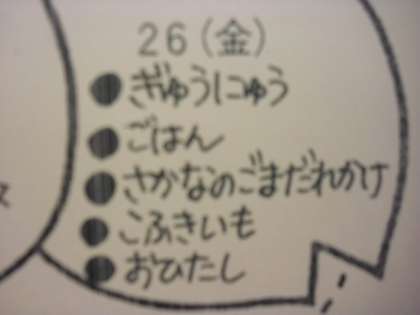 26(金)
●ぎゅうにゅう
●ごはん
●さかなのごまだれかけ
●こふきいも
●おひたし